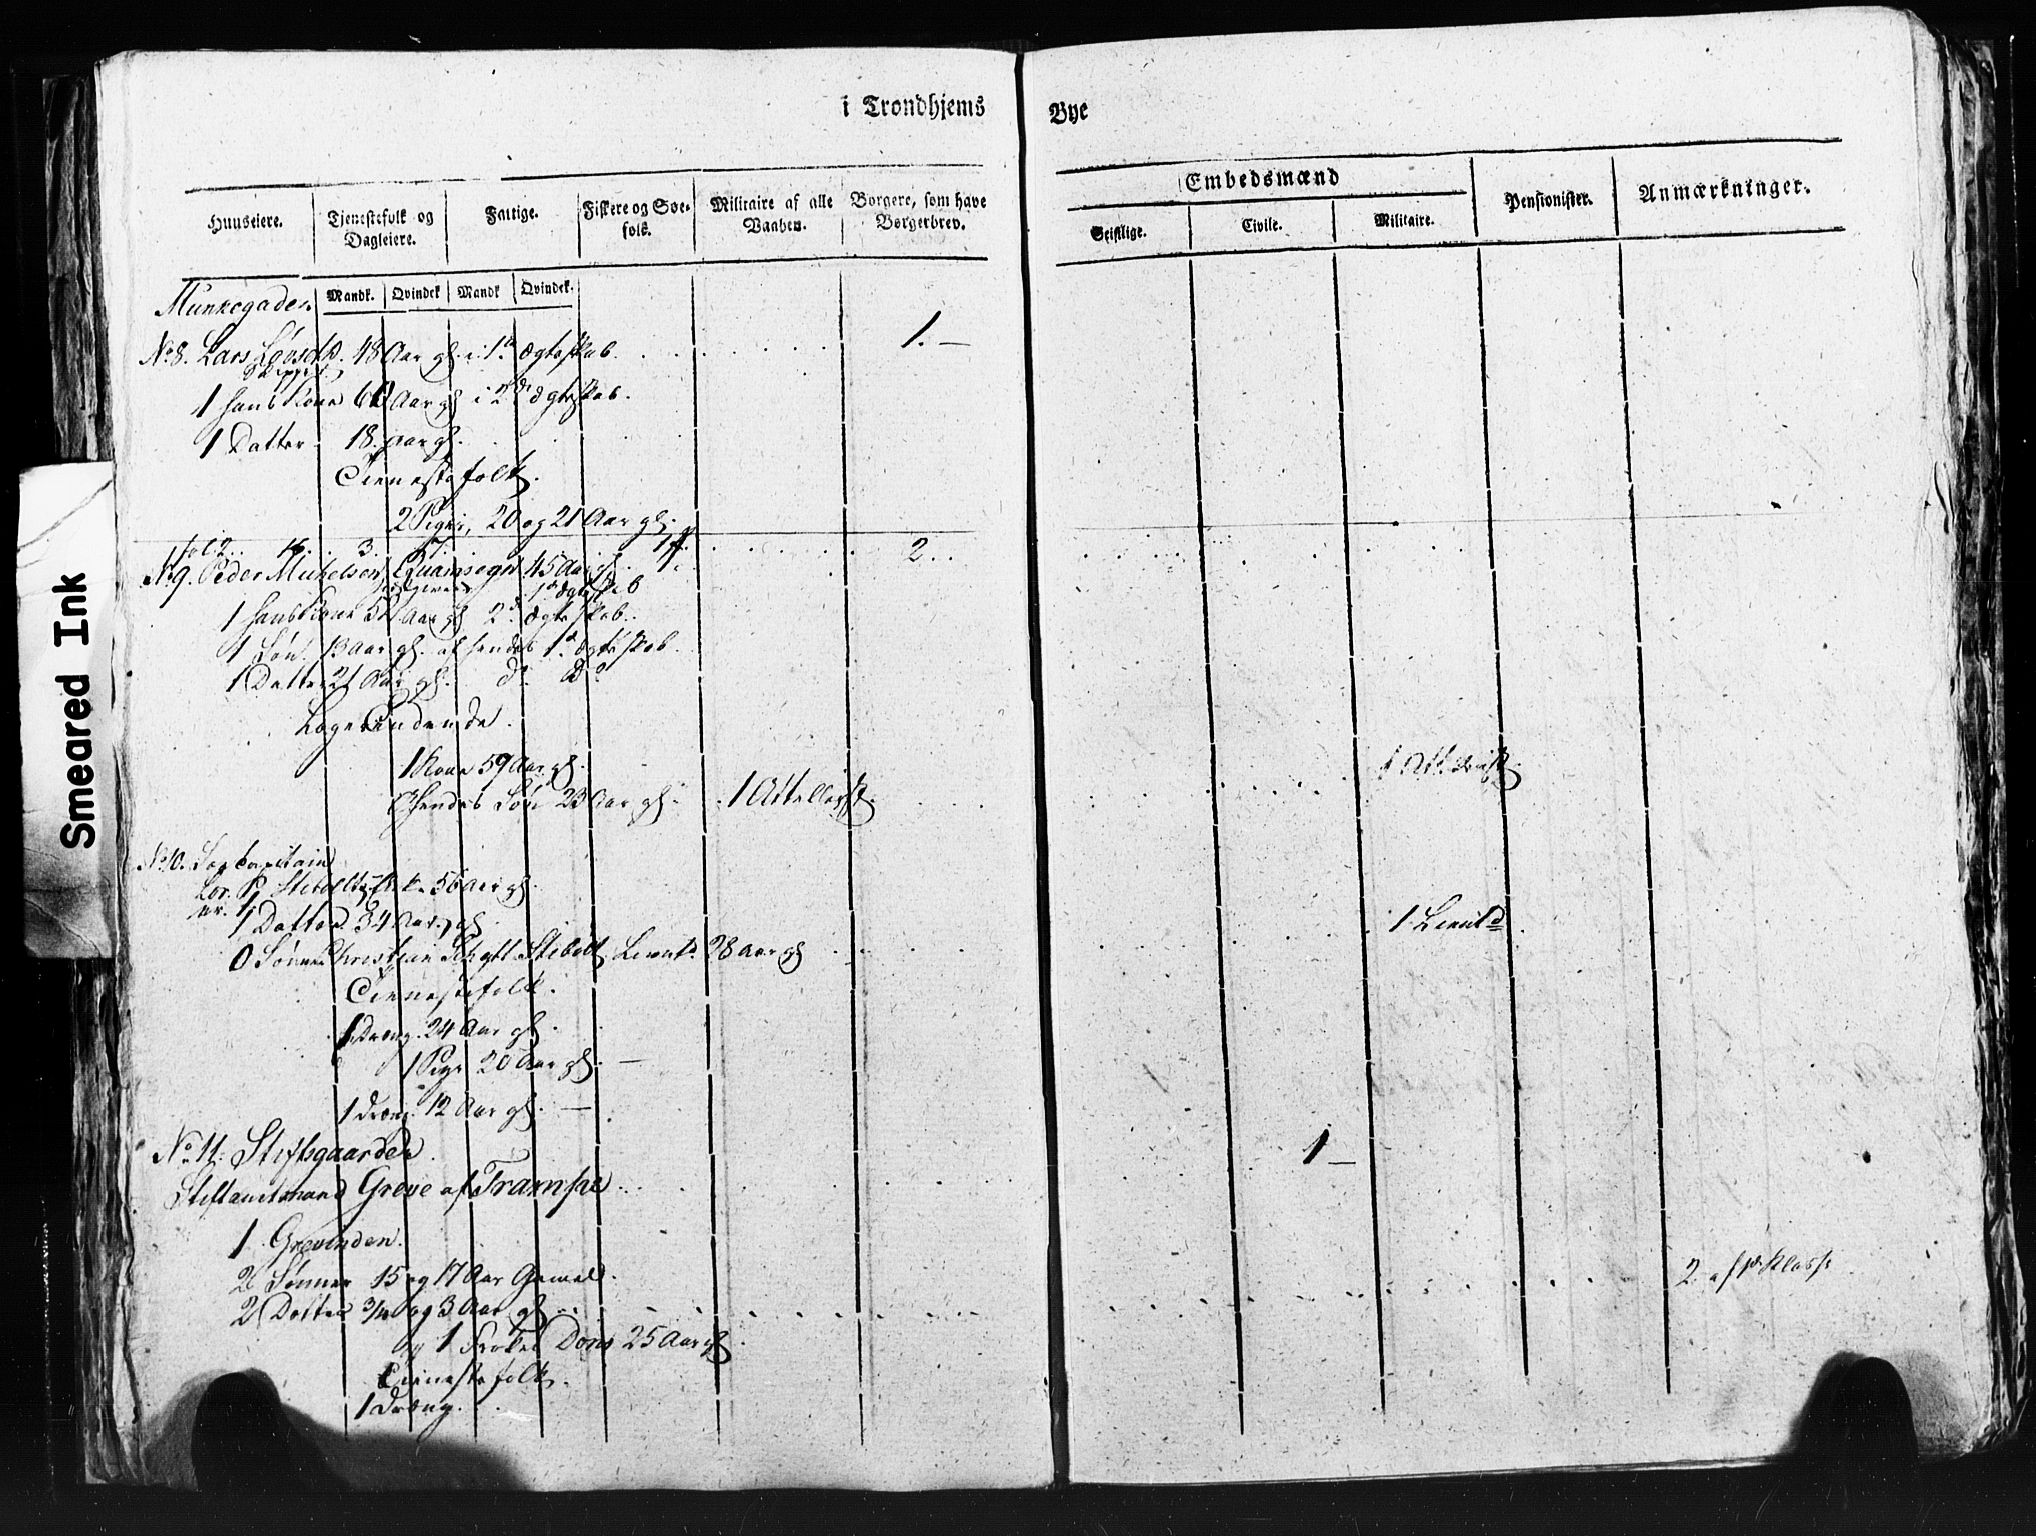 i Trondhjems Bye
Huuseiere.
Tjenestefolk og Dagleiere.
Fattige.
Fiskere og Søe-
folk.
Militaire af alle
Vaaben.
Borgere, som have
Borgerbrev.
Embedsmænd
Geistlige.
Civile.
Militaire.
Pensionister.
Anmærkninger.
Mandk. Qvindek Mandk Qvindek.
Munkegaden.
No 8. Lars 48 Aar gl. i 1te Ægteskab. 1.—
1 hans Kone Aar gl i 2det Ægteskab.
1 Datter 18 Aar gl.
Tienestefolk.
2 Piger, 20 og 21 Aar gl.
2..
No 9. Peder Michelsen 45 Aar gl. 1.
1ste Ægteskab
1 hans Kone Aar gl 2d Ægteskab.
1 Søn 13 Aar gl. af hendes 1te Ægteskab.
1 Datter 21 Aar gl. do Do
Logerendende.
1 Kone 59 Aar gl.
hendes Søn 23 Aar gl. 1 Artellerist.
No 10. Søe Capitain
Stibolts Enke 56 Aar gl.
1 Datter 34 Aar gl
0 Sønner Christian Stibolt Lieut. 28 Aar gl 1 Lieut
Tienestefolk.
1 Dreng. 24 Aar gl.
1 Pige 20 Aar gl. —
1 Dreng. 12 Aar gl. —
No 11: Stiftsgaarden.
Stiftamtmand Greve af Trampe 1—
1 Grevinden.
2 Sønner 15 og 17 Aar Gamel.
2 Datter 3/4 og 3 Aar gl 2. af 1te Klasse
og 1 Frøken 25 Aar gl
Tienestefolk.
1 Dreng.
Smeared Ink